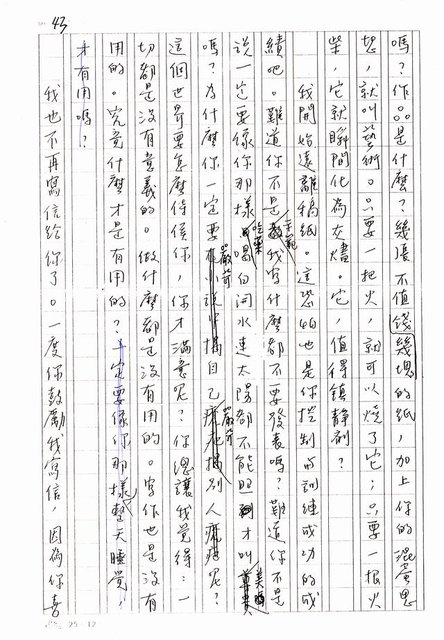 43
嗎？作品是什麼？幾張不值錢幾塊的紙，加上你的混蛋思
想，就叫藝術。只要一把火，就可以燒了它；只要一根火
柴，它就瞬間化為灰燼。它，值得鎮靜劑？
我開始遠離稿紙。這恐怕也是你控制的訓練成功的成
績吧。難道你不是我寫什麼都不要發表嗎？難道你不是
說一定要像你那樣吃藥喝白開水連太陽都不能曬才叫美
嗎？為什麼你一定要說自己別人呢？
這個世界要怎麼待候你，你才滿意呢？你總讓我覺得：一
切都是沒有意義的。做什麼都是沒有用的。寫作也是沒有
用的。究竟什麼才是有用的？一定要像你那樣整天睡覺，
才有用嗎？
我也不再寫信給你了。一度你鼓勵我寫信，因為你喜
25 12